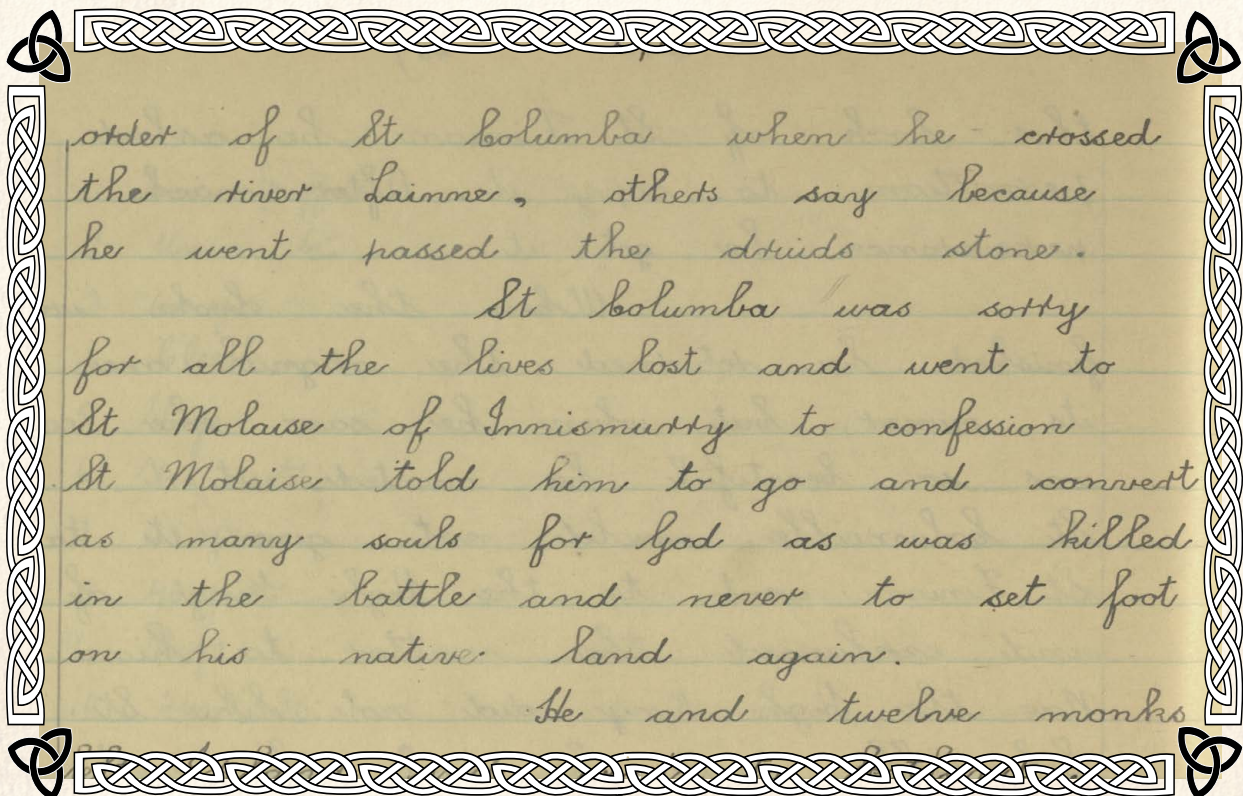 order of St Columba when he crossed
the river Lainne, others say because
he went passed the druids stone.
St Columba was sorry
for all the lives lost and went to
St Molaise of Innismurry to confession
St Molaise told him to go and convert
as many souls for God as was killed
in the battle and never to set foot
on his native land again.
He and twelve monks